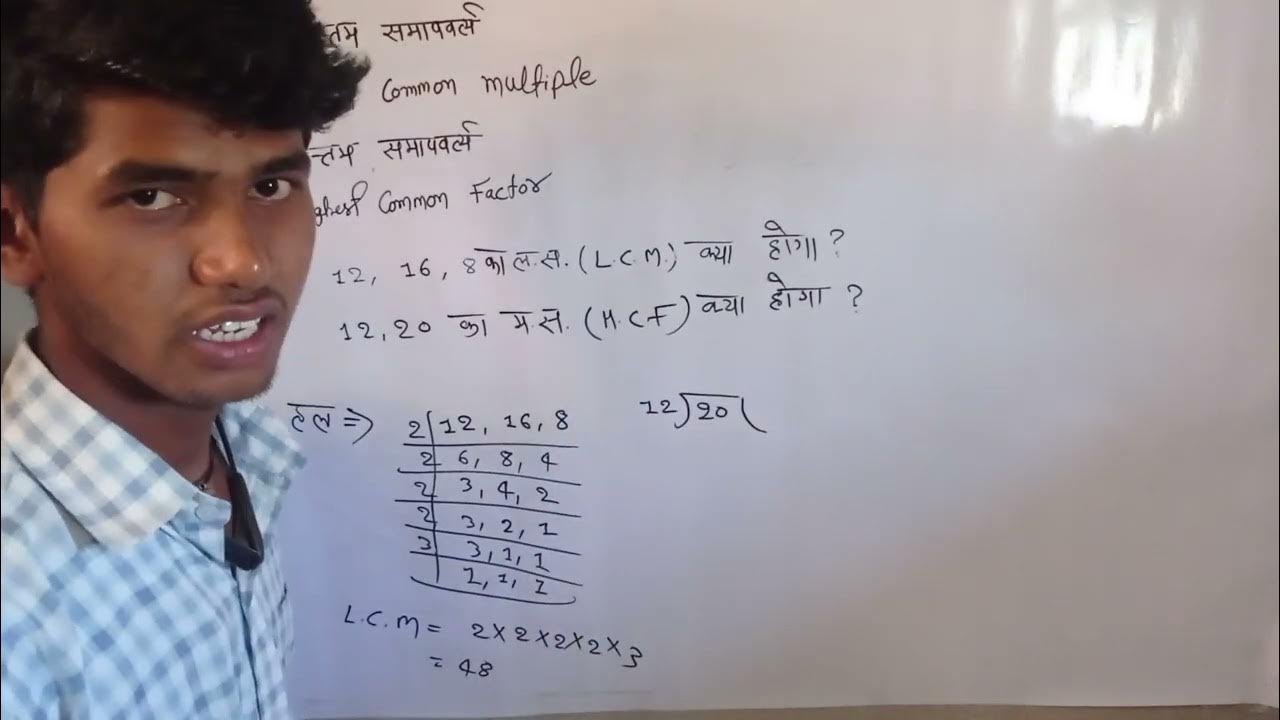 समापवर्त्य
Common multiple
समापवर्त्य
Common Factor
12, 16, 8 का ल.स. (L.C.M.) क्या होगा ?
12, 20 का म.स. (H.C.F) क्या होगा ?
हल ⇒ 2 | 12, 16, 8
2 | 6, 8, 4
2 | 3, 4, 2
2 | 3, 2, 1
3 | 3, 1, 1
1, 1, 1
12)20(
L.C.M = 2×2×2×2×3
= 48